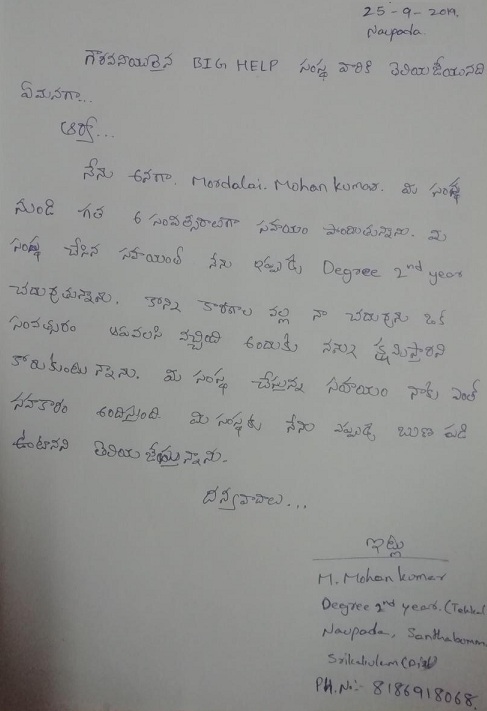 25-9-2019.
Naupada.
గౌరవనీయులైన BIG HELP సంస్థ వారికి తెలియజేయునది
ఏమనగా...
ఆర్యా...
నేను అనగా. Mordalai. Mohan kumar. మీ సంస్థ
నుండి గత 6 సంవత్సరాలుగా సహాయం పొందుతున్నాను. మీ
సంస్థ చేసిన సహాయంతో నేను ఇప్పుడు Degree 2nd year
చదువుతున్నాను. కొన్ని కారణాల వల్ల నా చదువును ఒక
సంవత్సరం ఆపవలసి వచ్చింది అందుకు నన్ను క్షమిస్తారని
కోరుకుంటున్నాను. మీ సంస్థ చేస్తున్న సహాయం నాకు ఎంతో
సహకారం అందిస్తుంది. మీ సంస్థకు నేను ఎప్పుడు ఋణ పడి
ఉంటానని తెలియజేస్తున్నాను.
దన్యవాదాలు...
ఇట్లు
M. Mohan kumar
Degree 2nd year. (Tekkal
Naupada, Santhabomm
Srikakulam (Dist)
PH.No:- 8186918068.